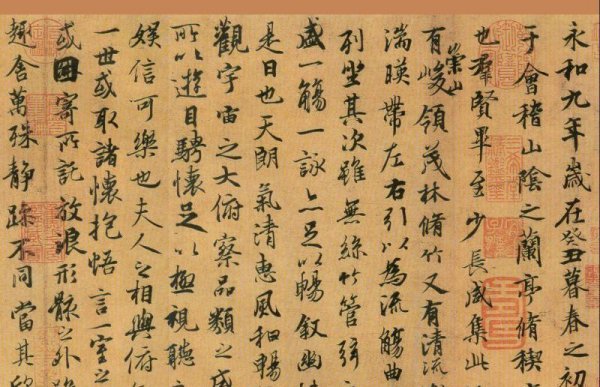 永和九年歲在癸丑暮春之初
于會稽山陰之蘭亭脩稧
也羣賢畢至少長咸集此
有崇山峻領茂林脩竹又有清流
湍暎帶左右引以為流觴曲
列坐其次雖無絲竹管弦
盛一觴一詠亦足以暢叙幽
是日也天朗氣清惠風和暢
觀宇宙之大俯察品類之盛
所以遊目騁懷足以極視聽之
娛信可樂也夫人之相與俯
一世或取諸懷抱悟言一室之
或因寄所託放浪形骸之外
趣舍萬殊靜躁不同當其欣